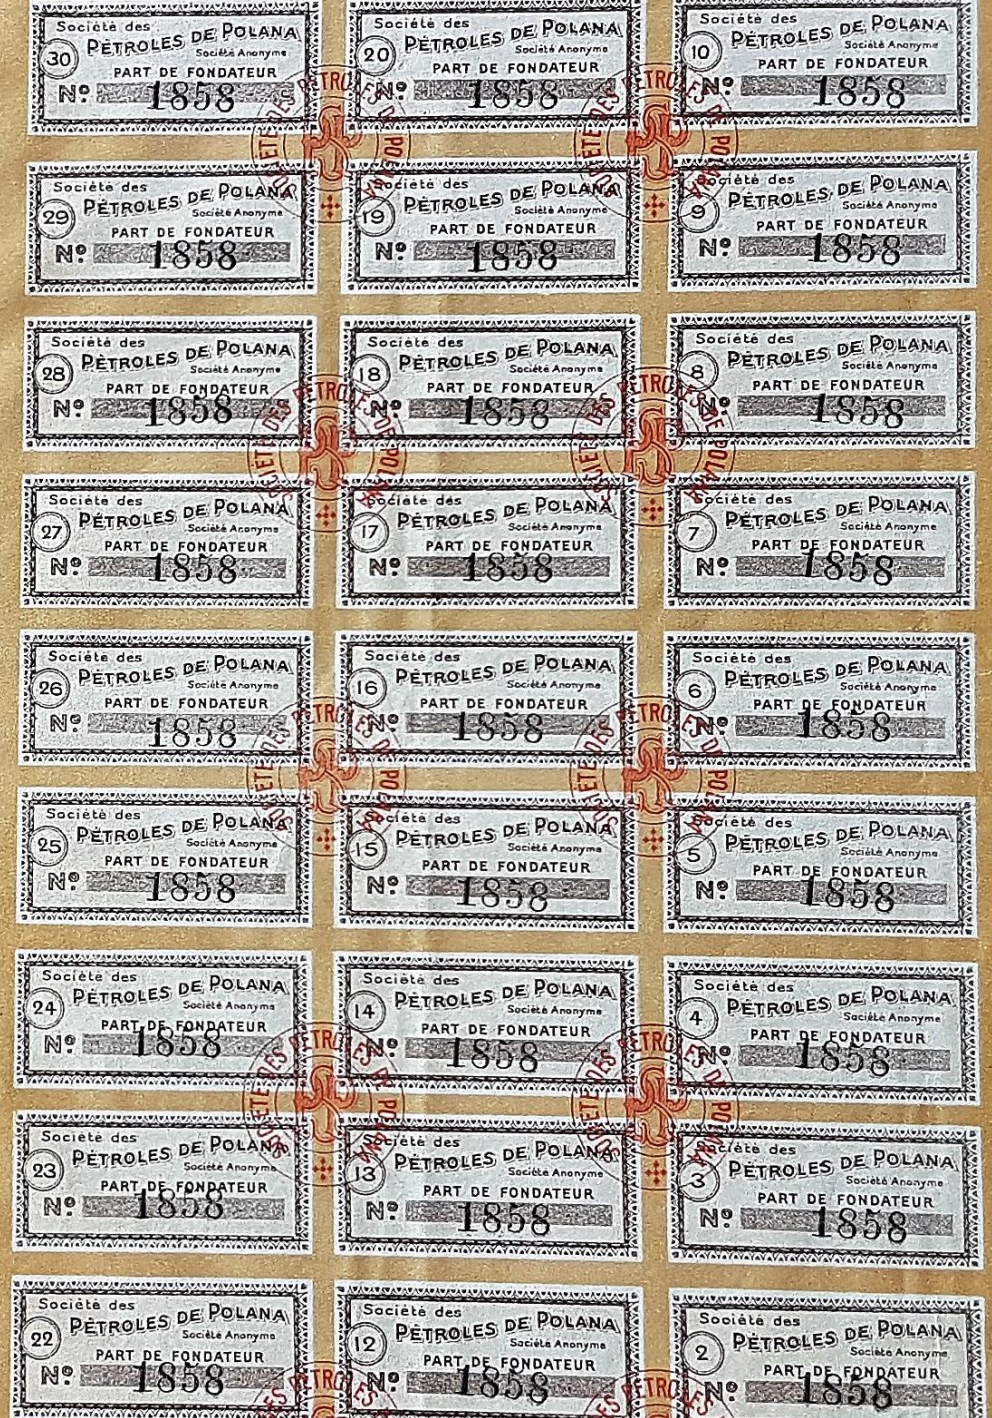 Société des
PÉTROLES DE POLANA
Société Anonyme
30
PART DE FONDATEUR
Nº 1858
Société des
PÉTROLES DE POLANA
Société Anonyme
20
PART DE FONDATEUR
Nº 1858
Société des
PÉTROLES DE POLANA
Société Anonyme
10
PART DE FONDATEUR
Nº 1858
SOCIÉTÉ DES PÉTROLES DE POLANA
SOCIÉTÉ DES PÉTROLES DE POLANA
Société des
PÉTROLES DE POLANA
Société Anonyme
29
PART DE FONDATEUR
Nº 1858
Société des
PÉTROLES DE POLANA
Société Anonyme
19
PART DE FONDATEUR
Nº 1858
Société des
PÉTROLES DE POLANA
Société Anonyme
9
PART DE FONDATEUR
Nº 1858
Société des
PÉTROLES DE POLANA
Société Anonyme
28
PART DE FONDATEUR
Nº 1858
Société des
PÉTROLES DE POLANA
Société Anonyme
18
PART DE FONDATEUR
Nº 1858
Société des
PÉTROLES DE POLANA
Société Anonyme
8
PART DE FONDATEUR
Nº 1858
SOCIÉTÉ DES PÉTROLES DE POLANA
SOCIÉTÉ DES PÉTROLES DE POLANA
Société des
PÉTROLES DE POLANA
Société Anonyme
27
PART DE FONDATEUR
Nº 1858
Société des
PÉTROLES DE POLANA
Société Anonyme
17
PART DE FONDATEUR
Nº 1858
Société des
PÉTROLES DE POLANA
Société Anonyme
7
PART DE FONDATEUR
Nº 1858
Société des
PÉTROLES DE POLANA
Société Anonyme
26
PART DE FONDATEUR
Nº 1858
Société des
PÉTROLES DE POLANA
Société Anonyme
16
PART DE FONDATEUR
Nº 1858
Société des
PÉTROLES DE POLANA
Société Anonyme
6
PART DE FONDATEUR
Nº 1858
SOCIÉTÉ DES PÉTROLES DE POLANA
SOCIÉTÉ DES PÉTROLES DE POLANA
Société des
PÉTROLES DE POLANA
Société Anonyme
25
PART DE FONDATEUR
Nº 1858
Société des
PÉTROLES DE POLANA
Société Anonyme
15
PART DE FONDATEUR
Nº 1858
Société des
PÉTROLES DE POLANA
Société Anonyme
5
PART DE FONDATEUR
Nº 1858
Société des
PÉTROLES DE POLANA
Société Anonyme
24
PART DE FONDATEUR
Nº 1858
Société des
PÉTROLES DE POLANA
Société Anonyme
14
PART DE FONDATEUR
Nº 1858
Société des
PÉTROLES DE POLANA
Société Anonyme
4
PART DE FONDATEUR
Nº 1858
SOCIÉTÉ DES PÉTROLES DE POLANA
SOCIÉTÉ DES PÉTROLES DE POLANA
Société des
PÉTROLES DE POLANA
Société Anonyme
23
PART DE FONDATEUR
Nº 1858
Société des
PÉTROLES DE POLANA
Société Anonyme
13
PART DE FONDATEUR
Nº 1858
Société des
PÉTROLES DE POLANA
Société Anonyme
3
PART DE FONDATEUR
Nº 1858
Société des
PÉTROLES DE POLANA
Société Anonyme
22
PART DE FONDATEUR
Nº 1858
Société des
PÉTROLES DE POLANA
Société Anonyme
12
PART DE FONDATEUR
Nº 1858
Société des
PÉTROLES DE POLANA
Société Anonyme
2
PART DE FONDATEUR
Nº 1858